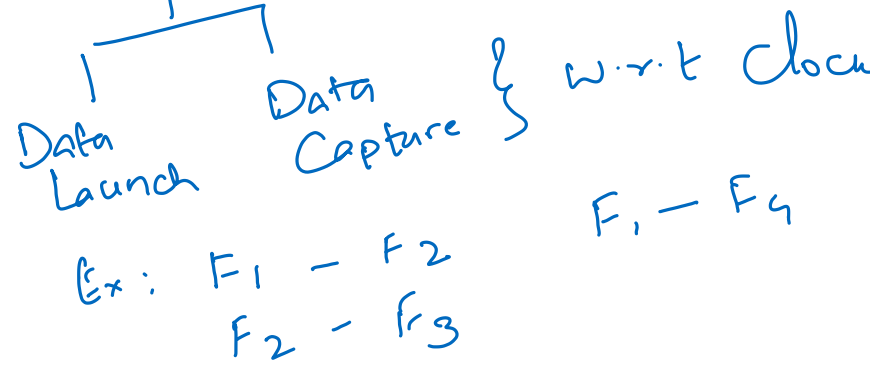 Data Launch
Data Capture } w.r.t Clock
Ex: F1 - F2
F2 - F3
F1 - F4